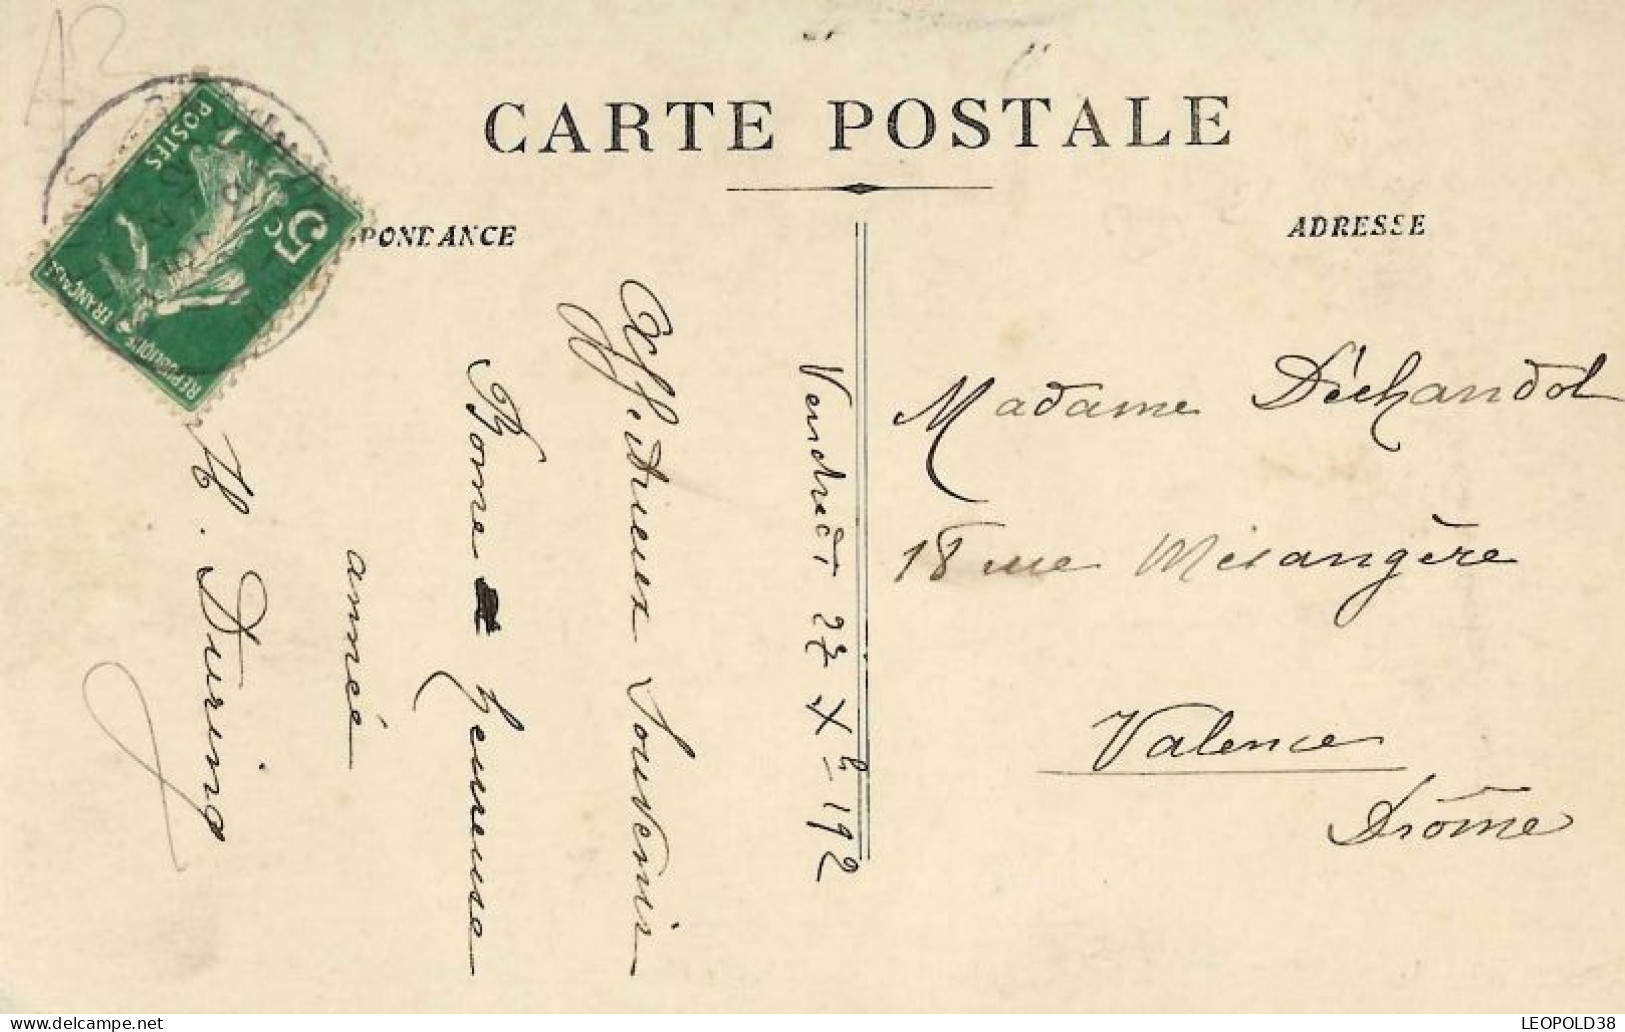 AB
CARTE POSTALE
PONDANCE
ADRESSE
POSTES
5c
REPUBLIQUE FRANÇAISE
Vendredi 27 Xbre 192
Affectueux Souvenir
Bonne heureuse
année
H. During
Madame Déchandol
18 rue Mésangère
Valence
Drôme
LEOPOLD38